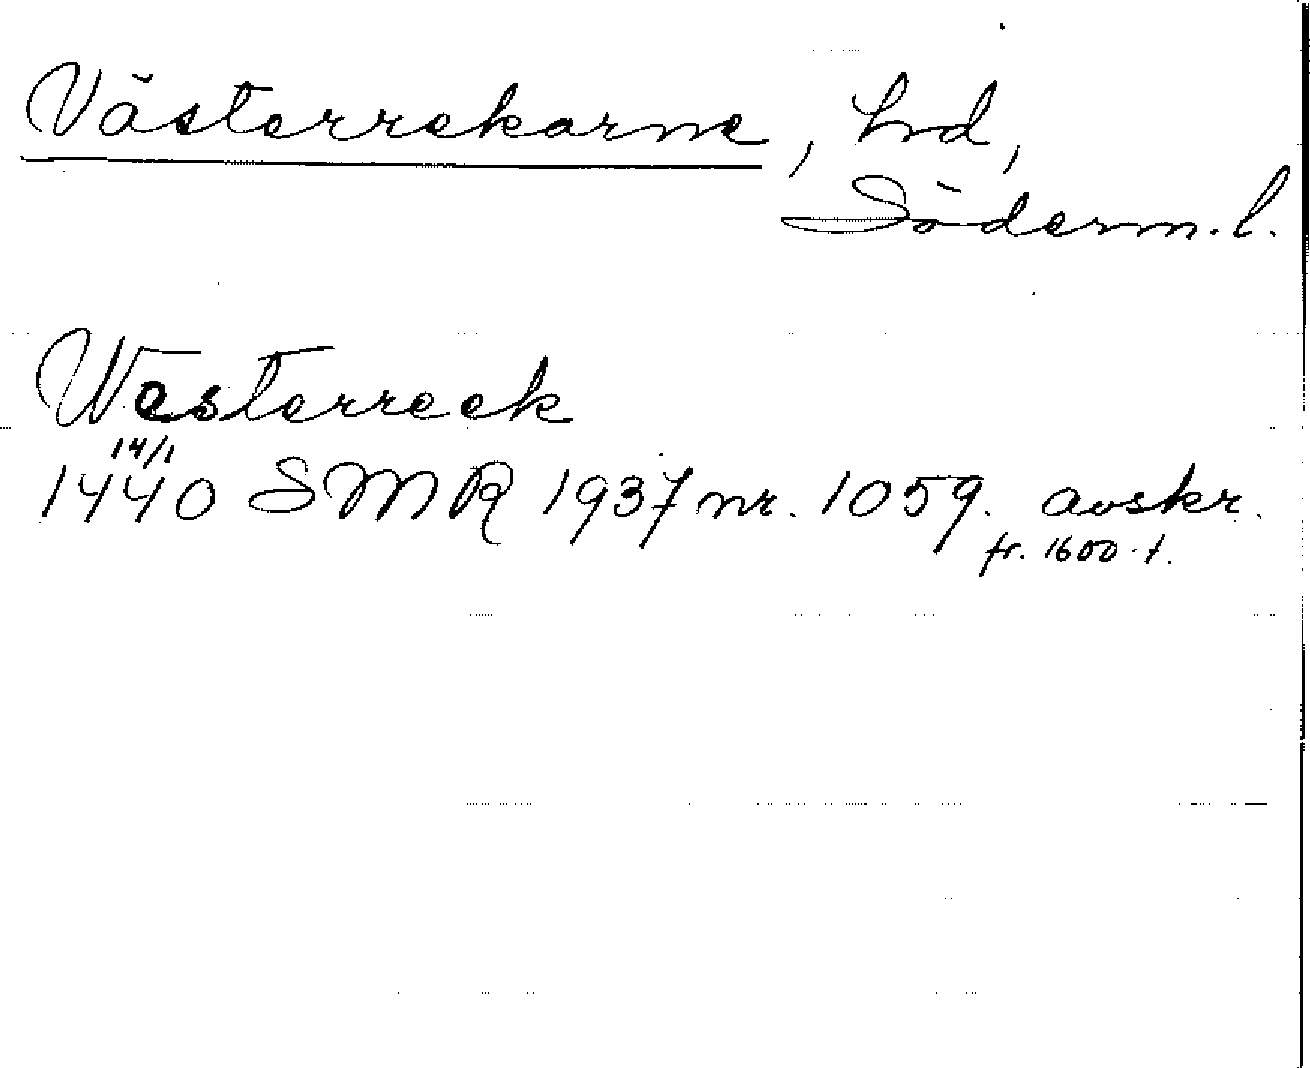 Västerrekarne, hrd,
Söderm.l.
Westerreek
14/1
1440 SMR 1937 nr. 1059. avskr.
fr. 1600-t.